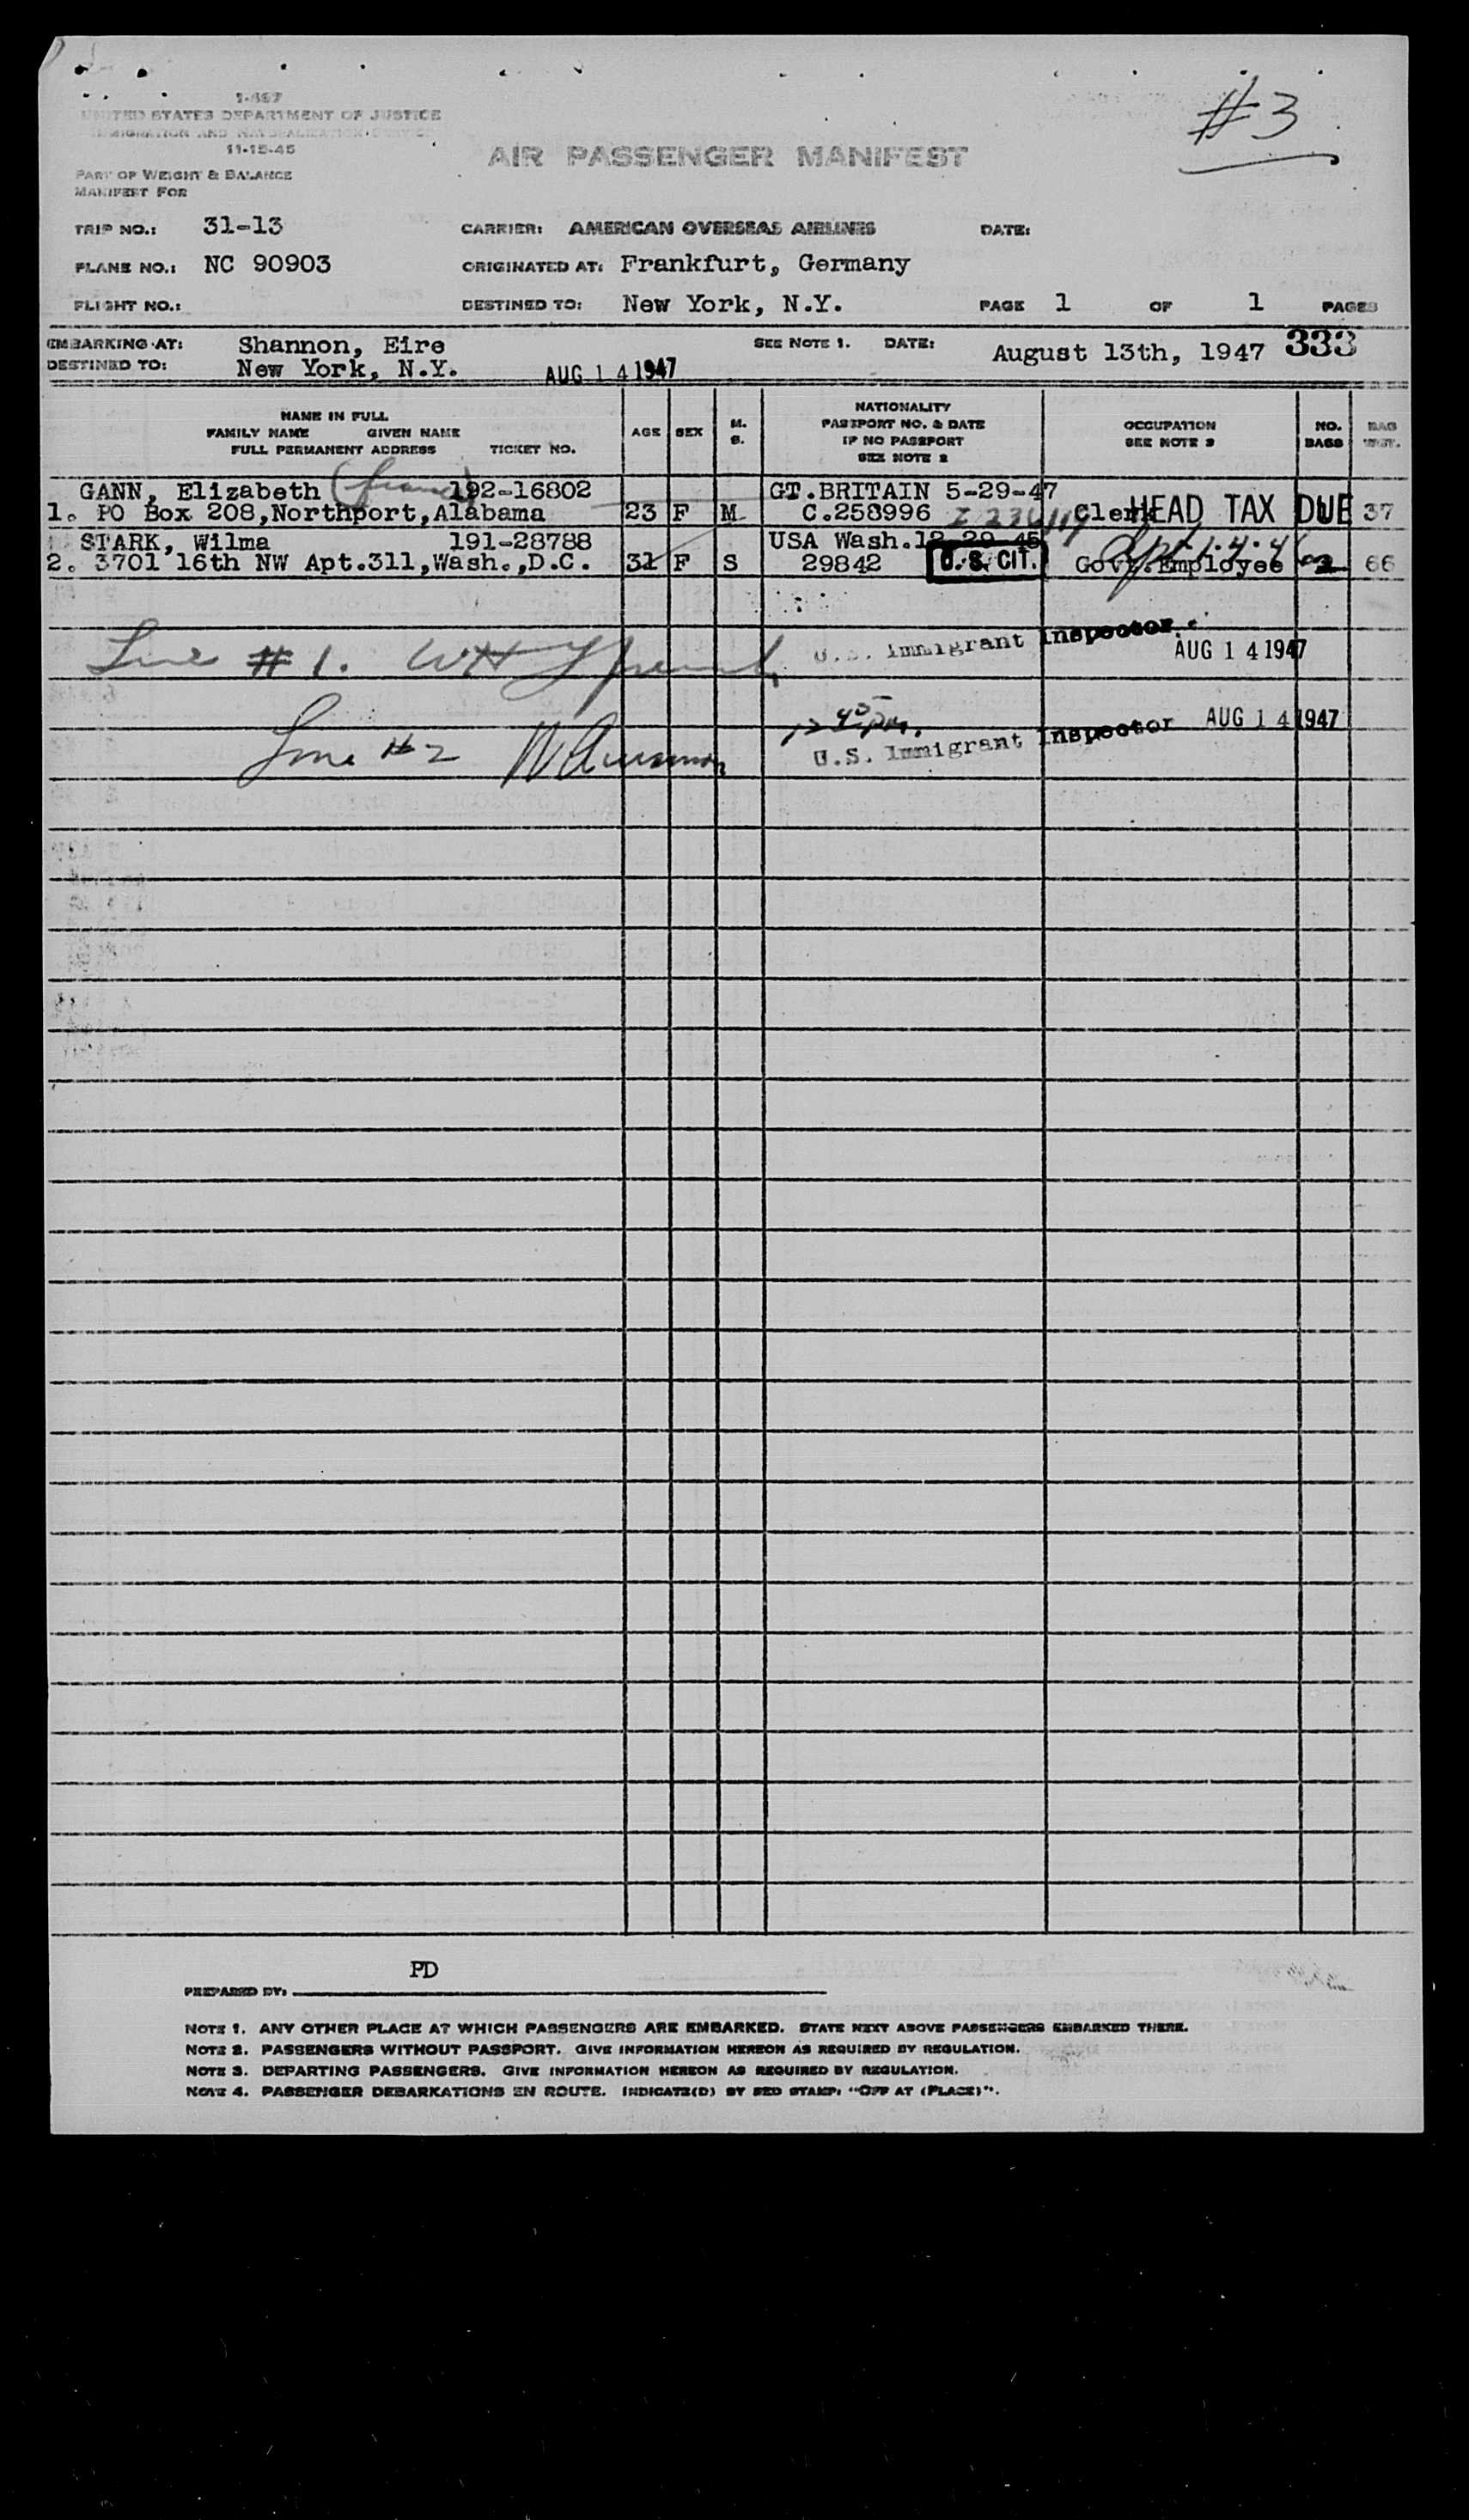 #3
I-467
UNITED STATES DEPARTMENT OF JUSTICE
IMMIGRATION AND NATURALIZATION SERVICE
11-15-45
AIR PASSENGER MANIFEST
PART OF WEIGHT & BALANCE
MANIFEST FOR
TRIP NO.: 31-13 CARRIER: AMERICAN OVERSEAS AIRLINES DATE:
PLANE NO.: NC 90903 ORIGINATED AT: Frankfurt, Germany
FLIGHT NO.: DESTINED TO: New York, N.Y. PAGE 1 OF 1 PAGES
EMBARKING AT: Shannon, Eire SEE NOTE 1. DATE: August 13th, 1947 333
DESTINED TO: New York, N.Y. AUG 14 1947
NAME IN FULL
FAMILY NAME GIVEN NAME
FULL PERMANENT ADDRESS TICKET NO.
AGE SEX M. S.
NATIONALITY
PASSPORT NO. & DATE
IF NO PASSPORT
SEE NOTE 2
OCCUPATION
SEE NOTE 3
NO. BAGS
BAG WGT.
GANN, Elizabeth 192-16802 GT.BRITAIN 5-29-47
1. PO Box 208,Northport,Alabama 23 F M C.258996 Clerk HEAD TAX DUE 37
STARK, Wilma 191-28788 USA Wash.12-29-45
2. 3701 16th NW Apt.311,Wash.,D.C. 31 F S 29842 U.S. CIT. Govt.Employee 2 66
Line #1. U.S. Immigrant Inspector
AUG 14 1947
12 45 PM. AUG 14 1947
Line #2 U.S. Immigrant Inspector
PREPARED BY: PD
NOTE 1. ANY OTHER PLACE AT WHICH PASSENGERS ARE EMBARKED. STATE NEXT ABOVE PASSENGERS EMBARKED THERE.
NOTE 2. PASSENGERS WITHOUT PASSPORT. GIVE INFORMATION HEREON AS REQUIRED BY REGULATION.
NOTE 3. DEPARTING PASSENGERS. GIVE INFORMATION HEREON AS REQUIRED BY REGULATION.
NOTE 4. PASSENGER DEBARKATIONS EN ROUTE. INDICATE(D) BY RED STAMP: "OFF AT (PLACE)".